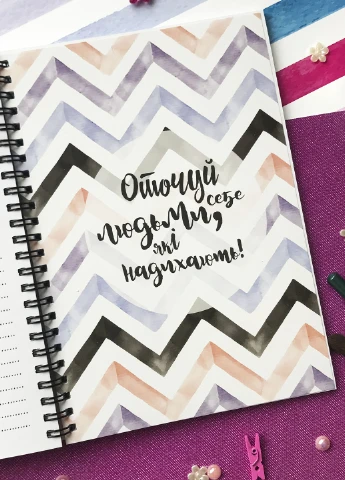 Оточуй
себе
людьми,
які
надихають!